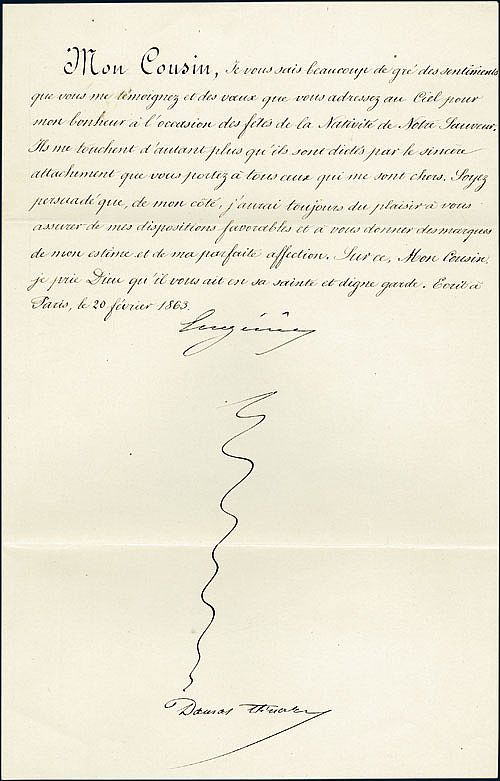 Mon Cousin, Je vous sais beaucoup de gré des sentiments
que vous me témoignez et des vœux que vous adressez au Ciel pour
mon bonheur à l'occasion des fêtes de la Nativité de Notre Sauveur.
Ils me touchent d'autant plus qu'ils sont dictés par le sincère
attachement que vous portez à tous ceux qui me sont chers. Soyez
persuadé que, de mon côté, j'aurai toujours du plaisir à vous
assurer de mes dispositions favorables et à vous donner des marques
de mon estime et de ma parfaite affection. Sur ce, Mon Cousin,
je prie Dieu qu'il vous ait en sa sainte et digne garde. Ecrit à
Paris, le 20 février 1863.
Eugénie
Damas